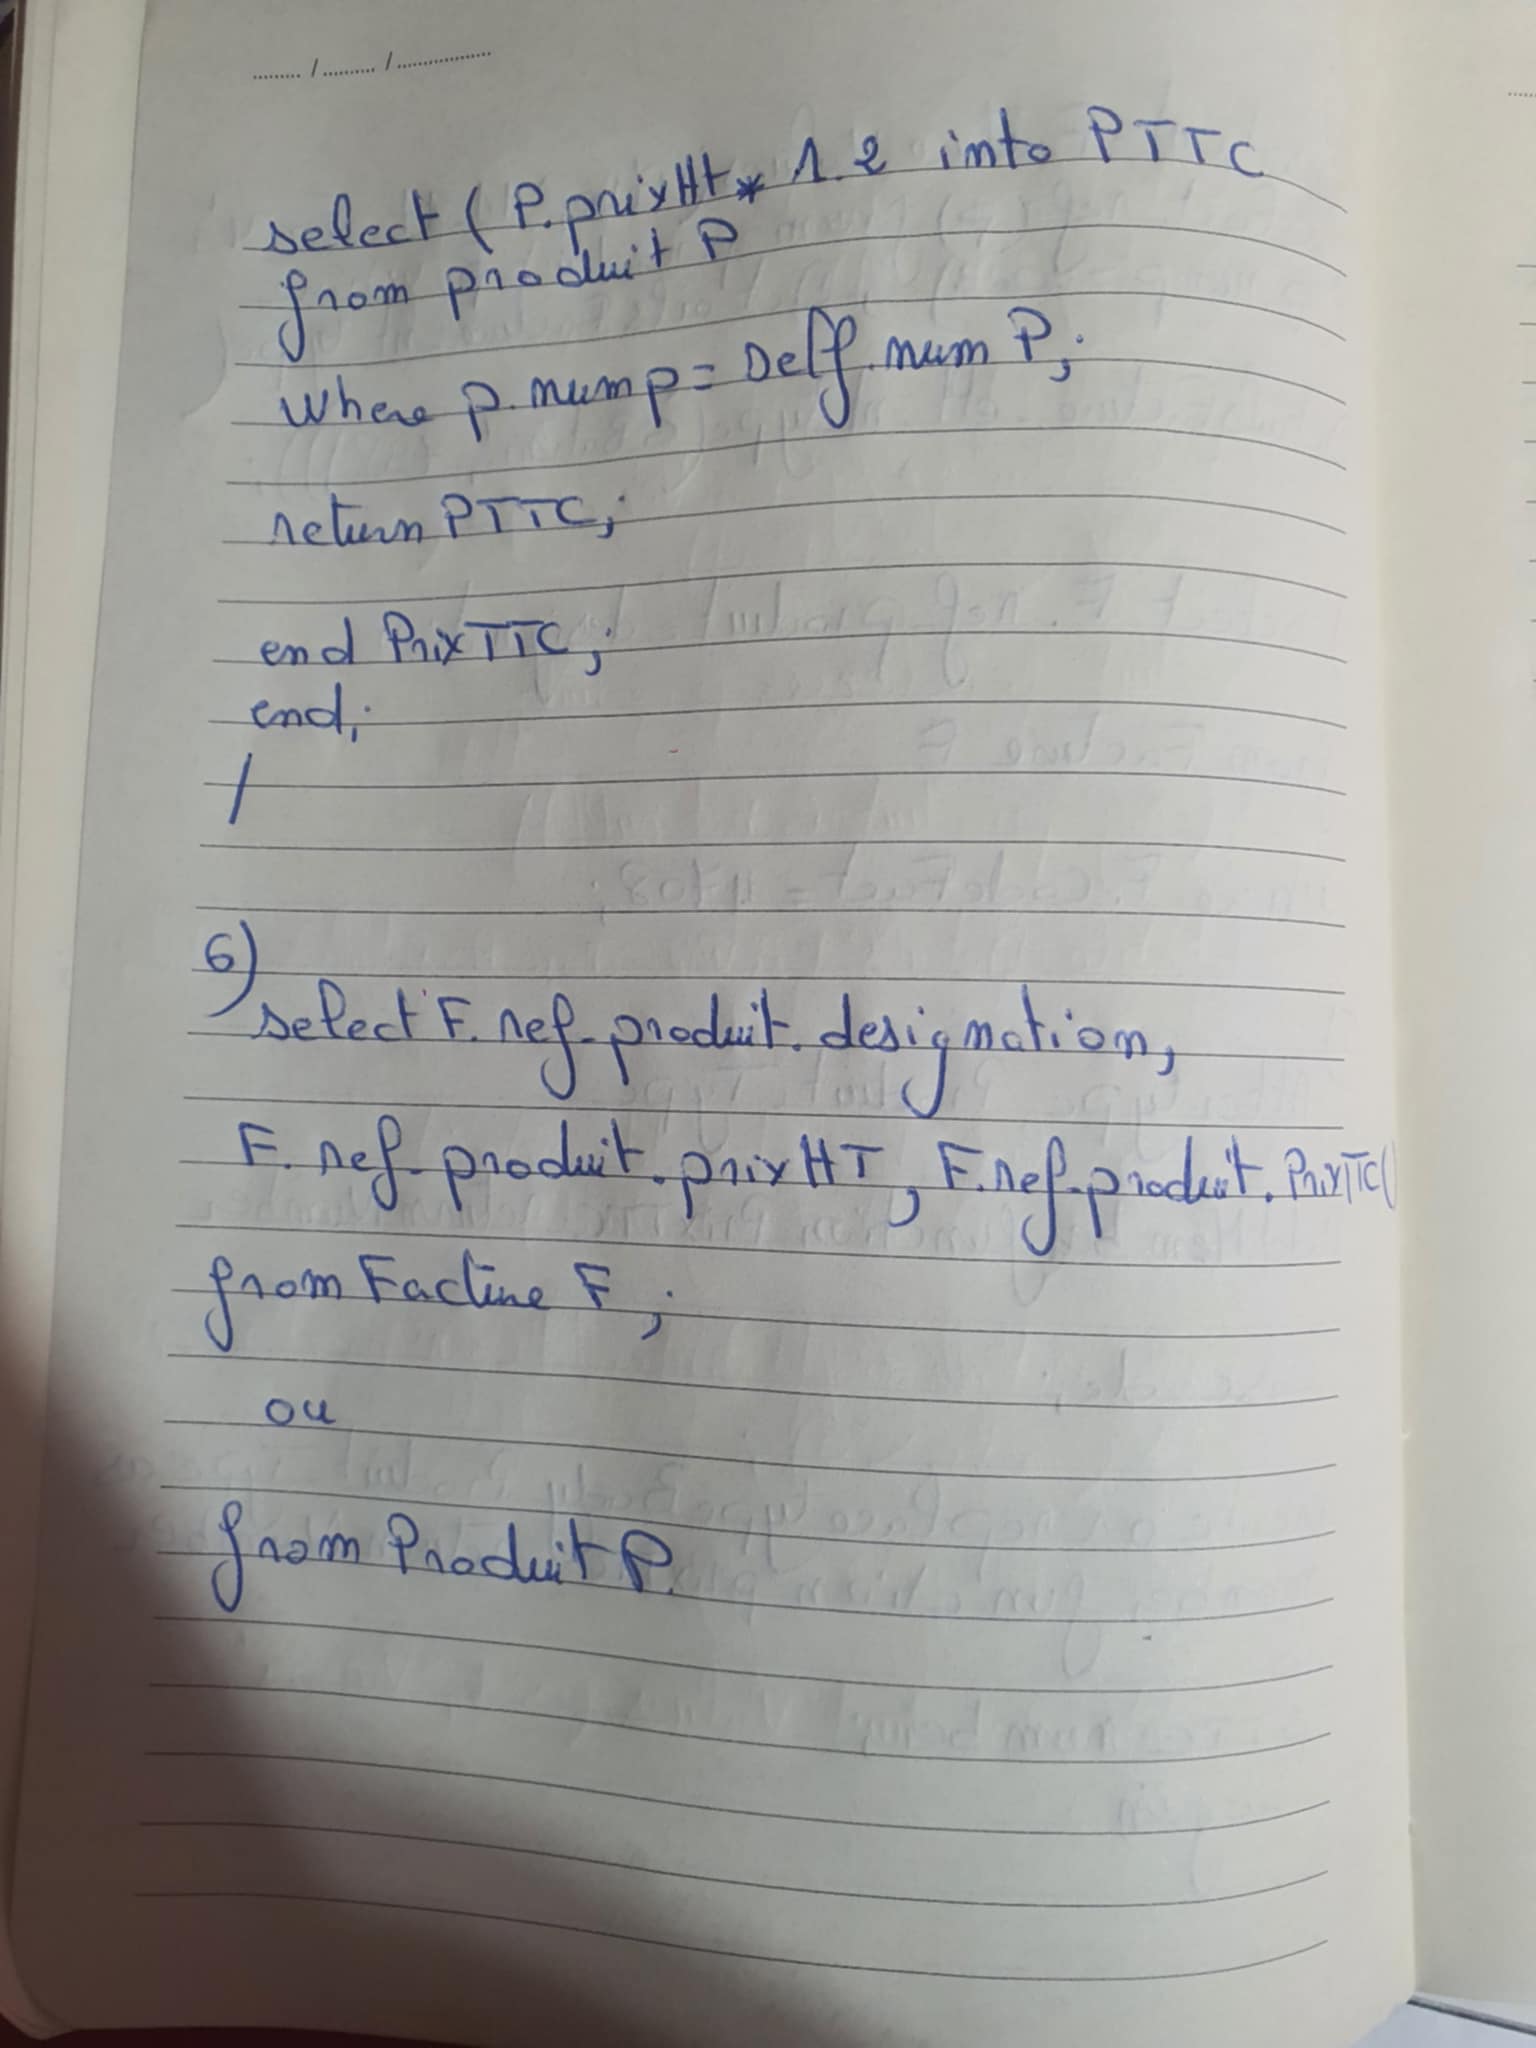 select (P.prixHt * 1.2 into PTTC
from produit P
Where p.nump = Delf.num P;
return PTTC;
end PrixTTC;
end;
/
6)
select F.ref_produit.designation,
F.ref_produit.prixHT, F.ref_produit.PrixTTC()
from Facture F;
ou
from Produit P.